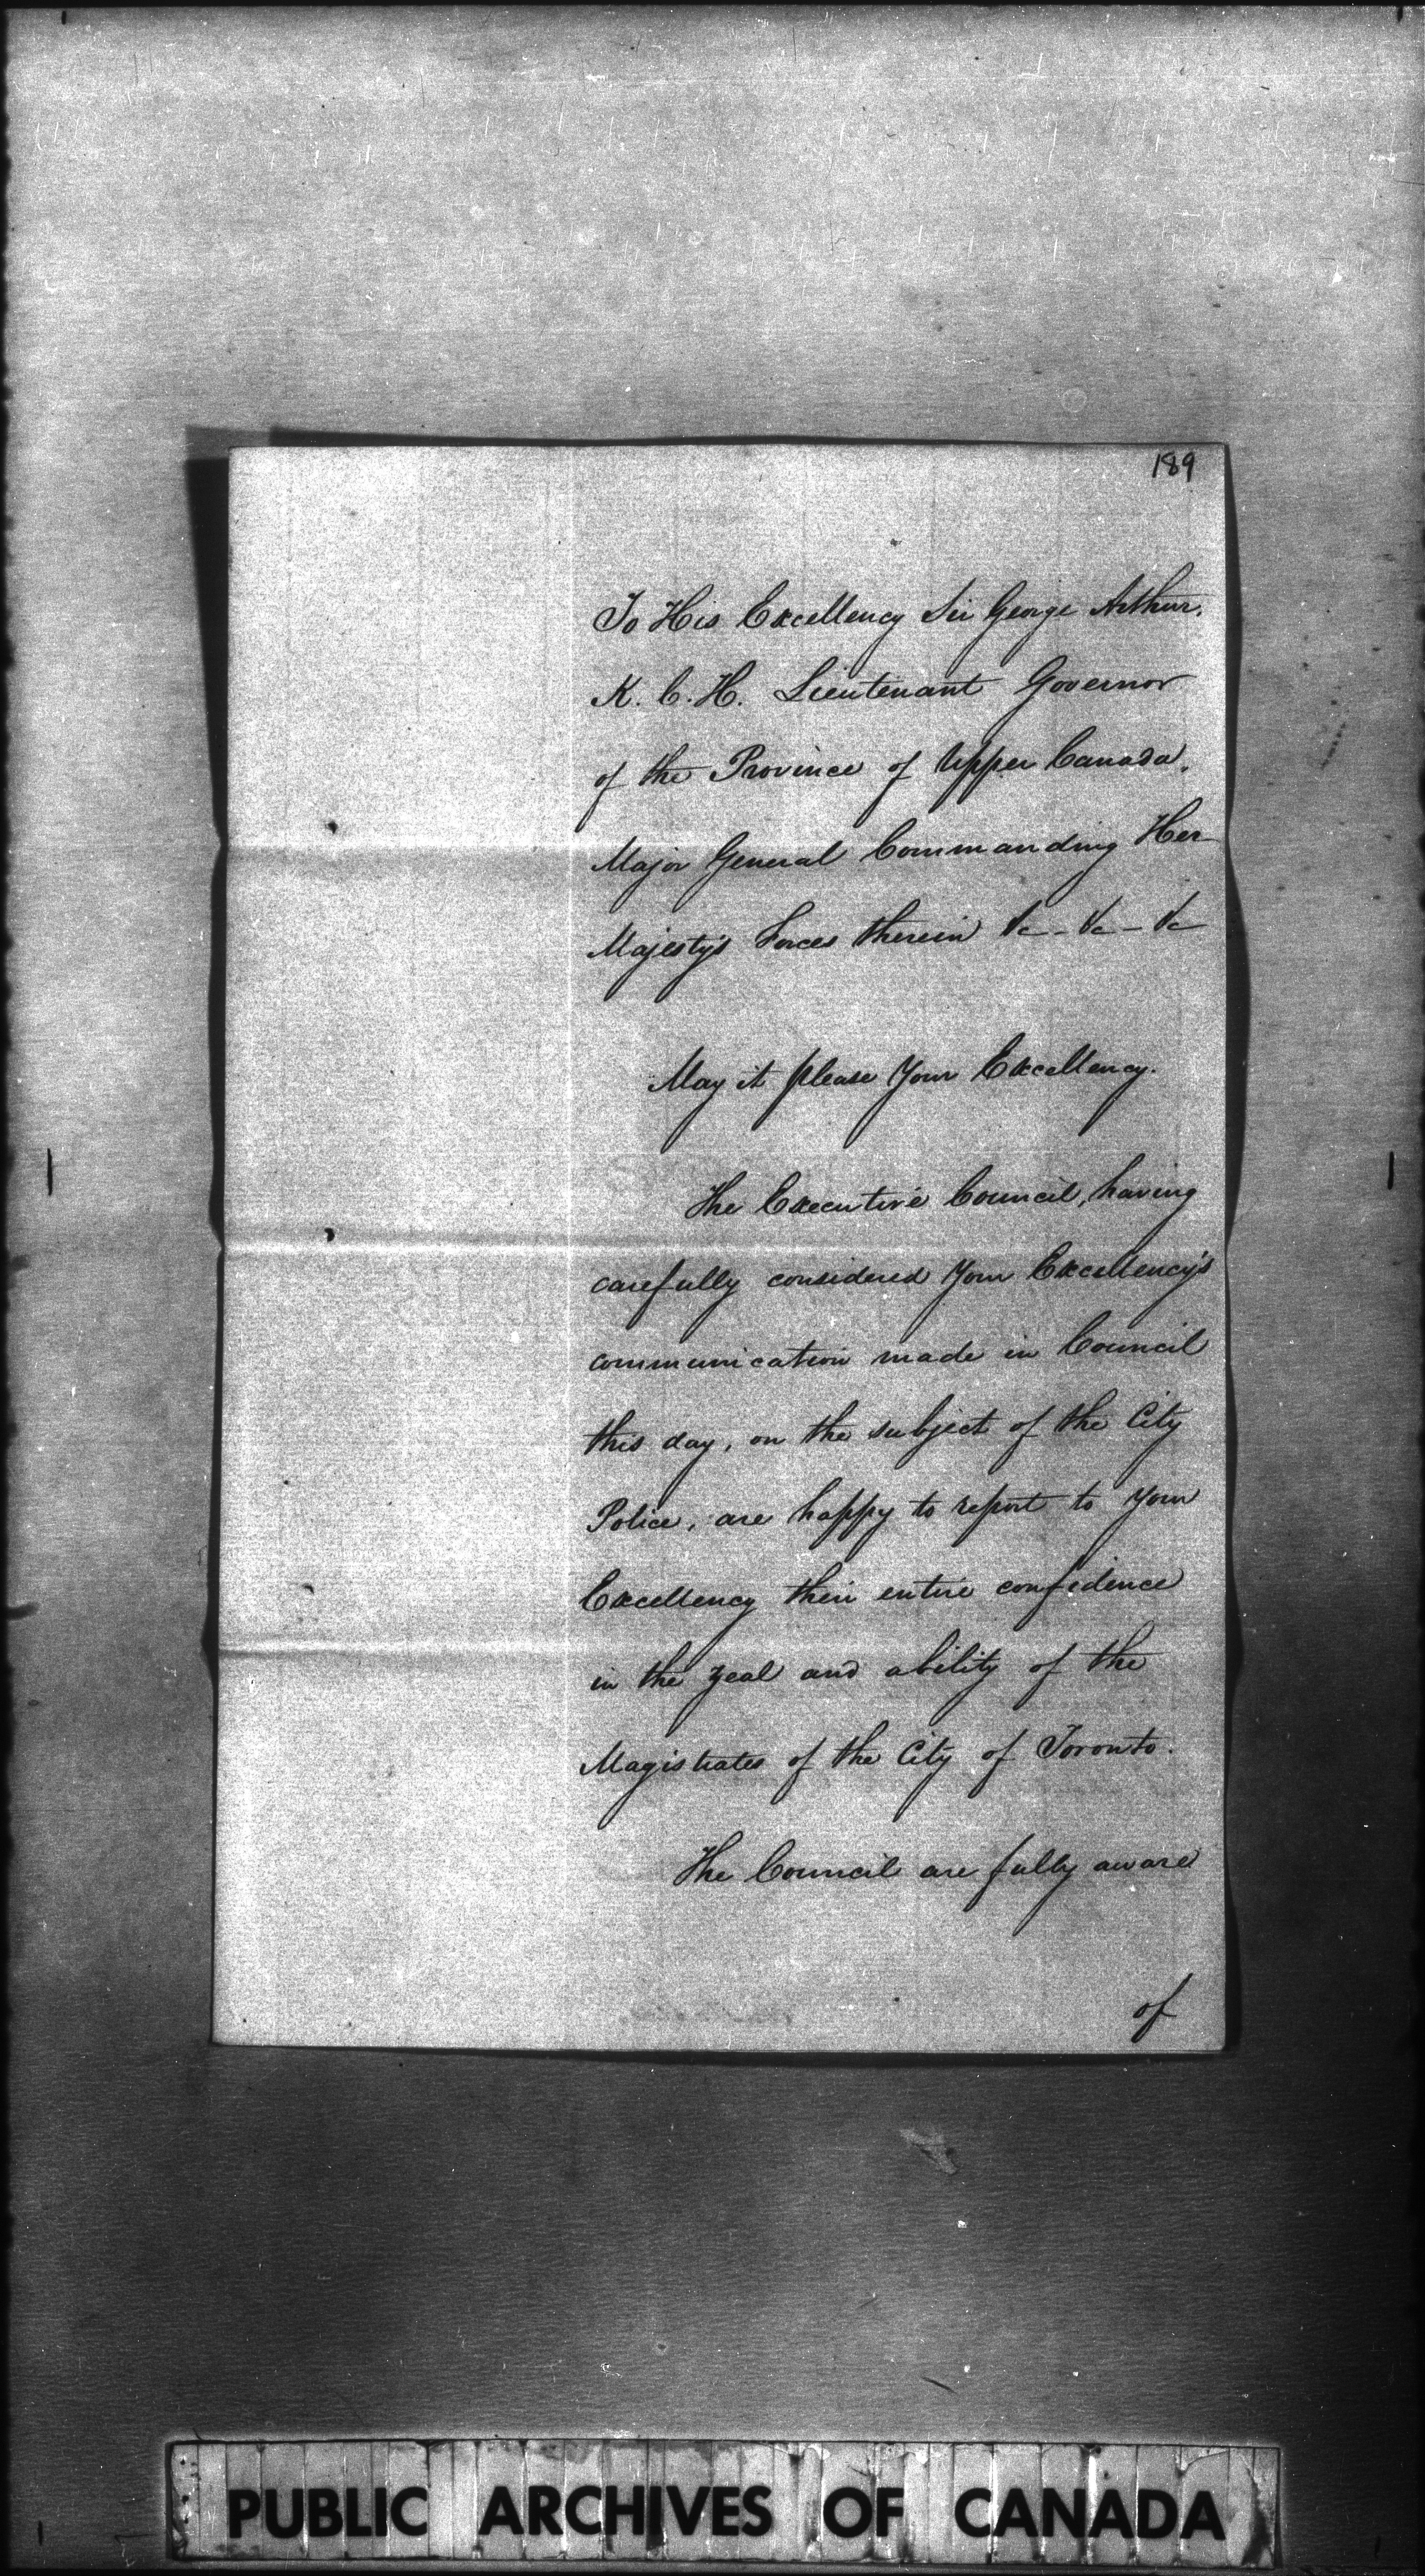 189
To His Excellency Sir George Arthur.
K. C. H. Lieutenant Governor
of the Province of Upper Canada,
Major General Commanding Her
Majesty's Forces therein &c - &c - &c
May it please Your Excellency.
The Executive Council, having
carefully considered Your Excellency's
communication made in Council
this day, on the subject of the City
Police, are happy to report to Your
Excellency their entire confidence
in the zeal and ability of the
Magistrates of the City of Toronto.
The Council are fully aware
of
PUBLIC ARCHIVES OF CANADA